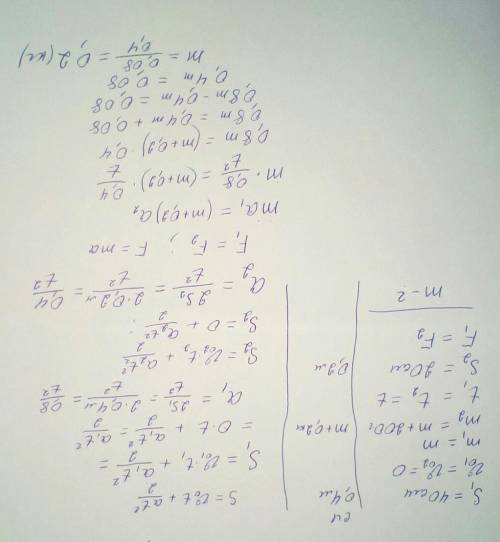 S₁ = 40 см
v₀₁ = v₀₂ = 0
m₁ = m
m₂ = m + 200г
t₁ = t₂ = t
S₂ = 20 см
F₁ = F₂
m - ?
си
0,4 м
m + 0,2 кг
0,2 м
S = v₀t + at²/2
S₁ = v₀₁·t₁ + a₁t²/2 =
= 0·t + a₁t²/2 = a₁t²/2
a₁ = 2S₁/t² = 2·0,4м/t² = 0,8/t²
S₂ = v₀₂·t₂ + a₂t²/2
S₂ = 0 + a₂t²/2 ;
a₂ = 2S₂/t² = 2·0,2м/t² = 0,4/t²
F₁ = F₂ ; F = ma
ma₁ = (m+0,2)a₂
m · 0,8/t² = (m+0,2) · 0,4/t
0,8m = (m+0,2) · 0,4
0,8m = 0,4m + 0,08
0,8m - 0,4m = 0,08
0,4m = 0,08
m = 0,08/0,4 = 0,2 (кг)